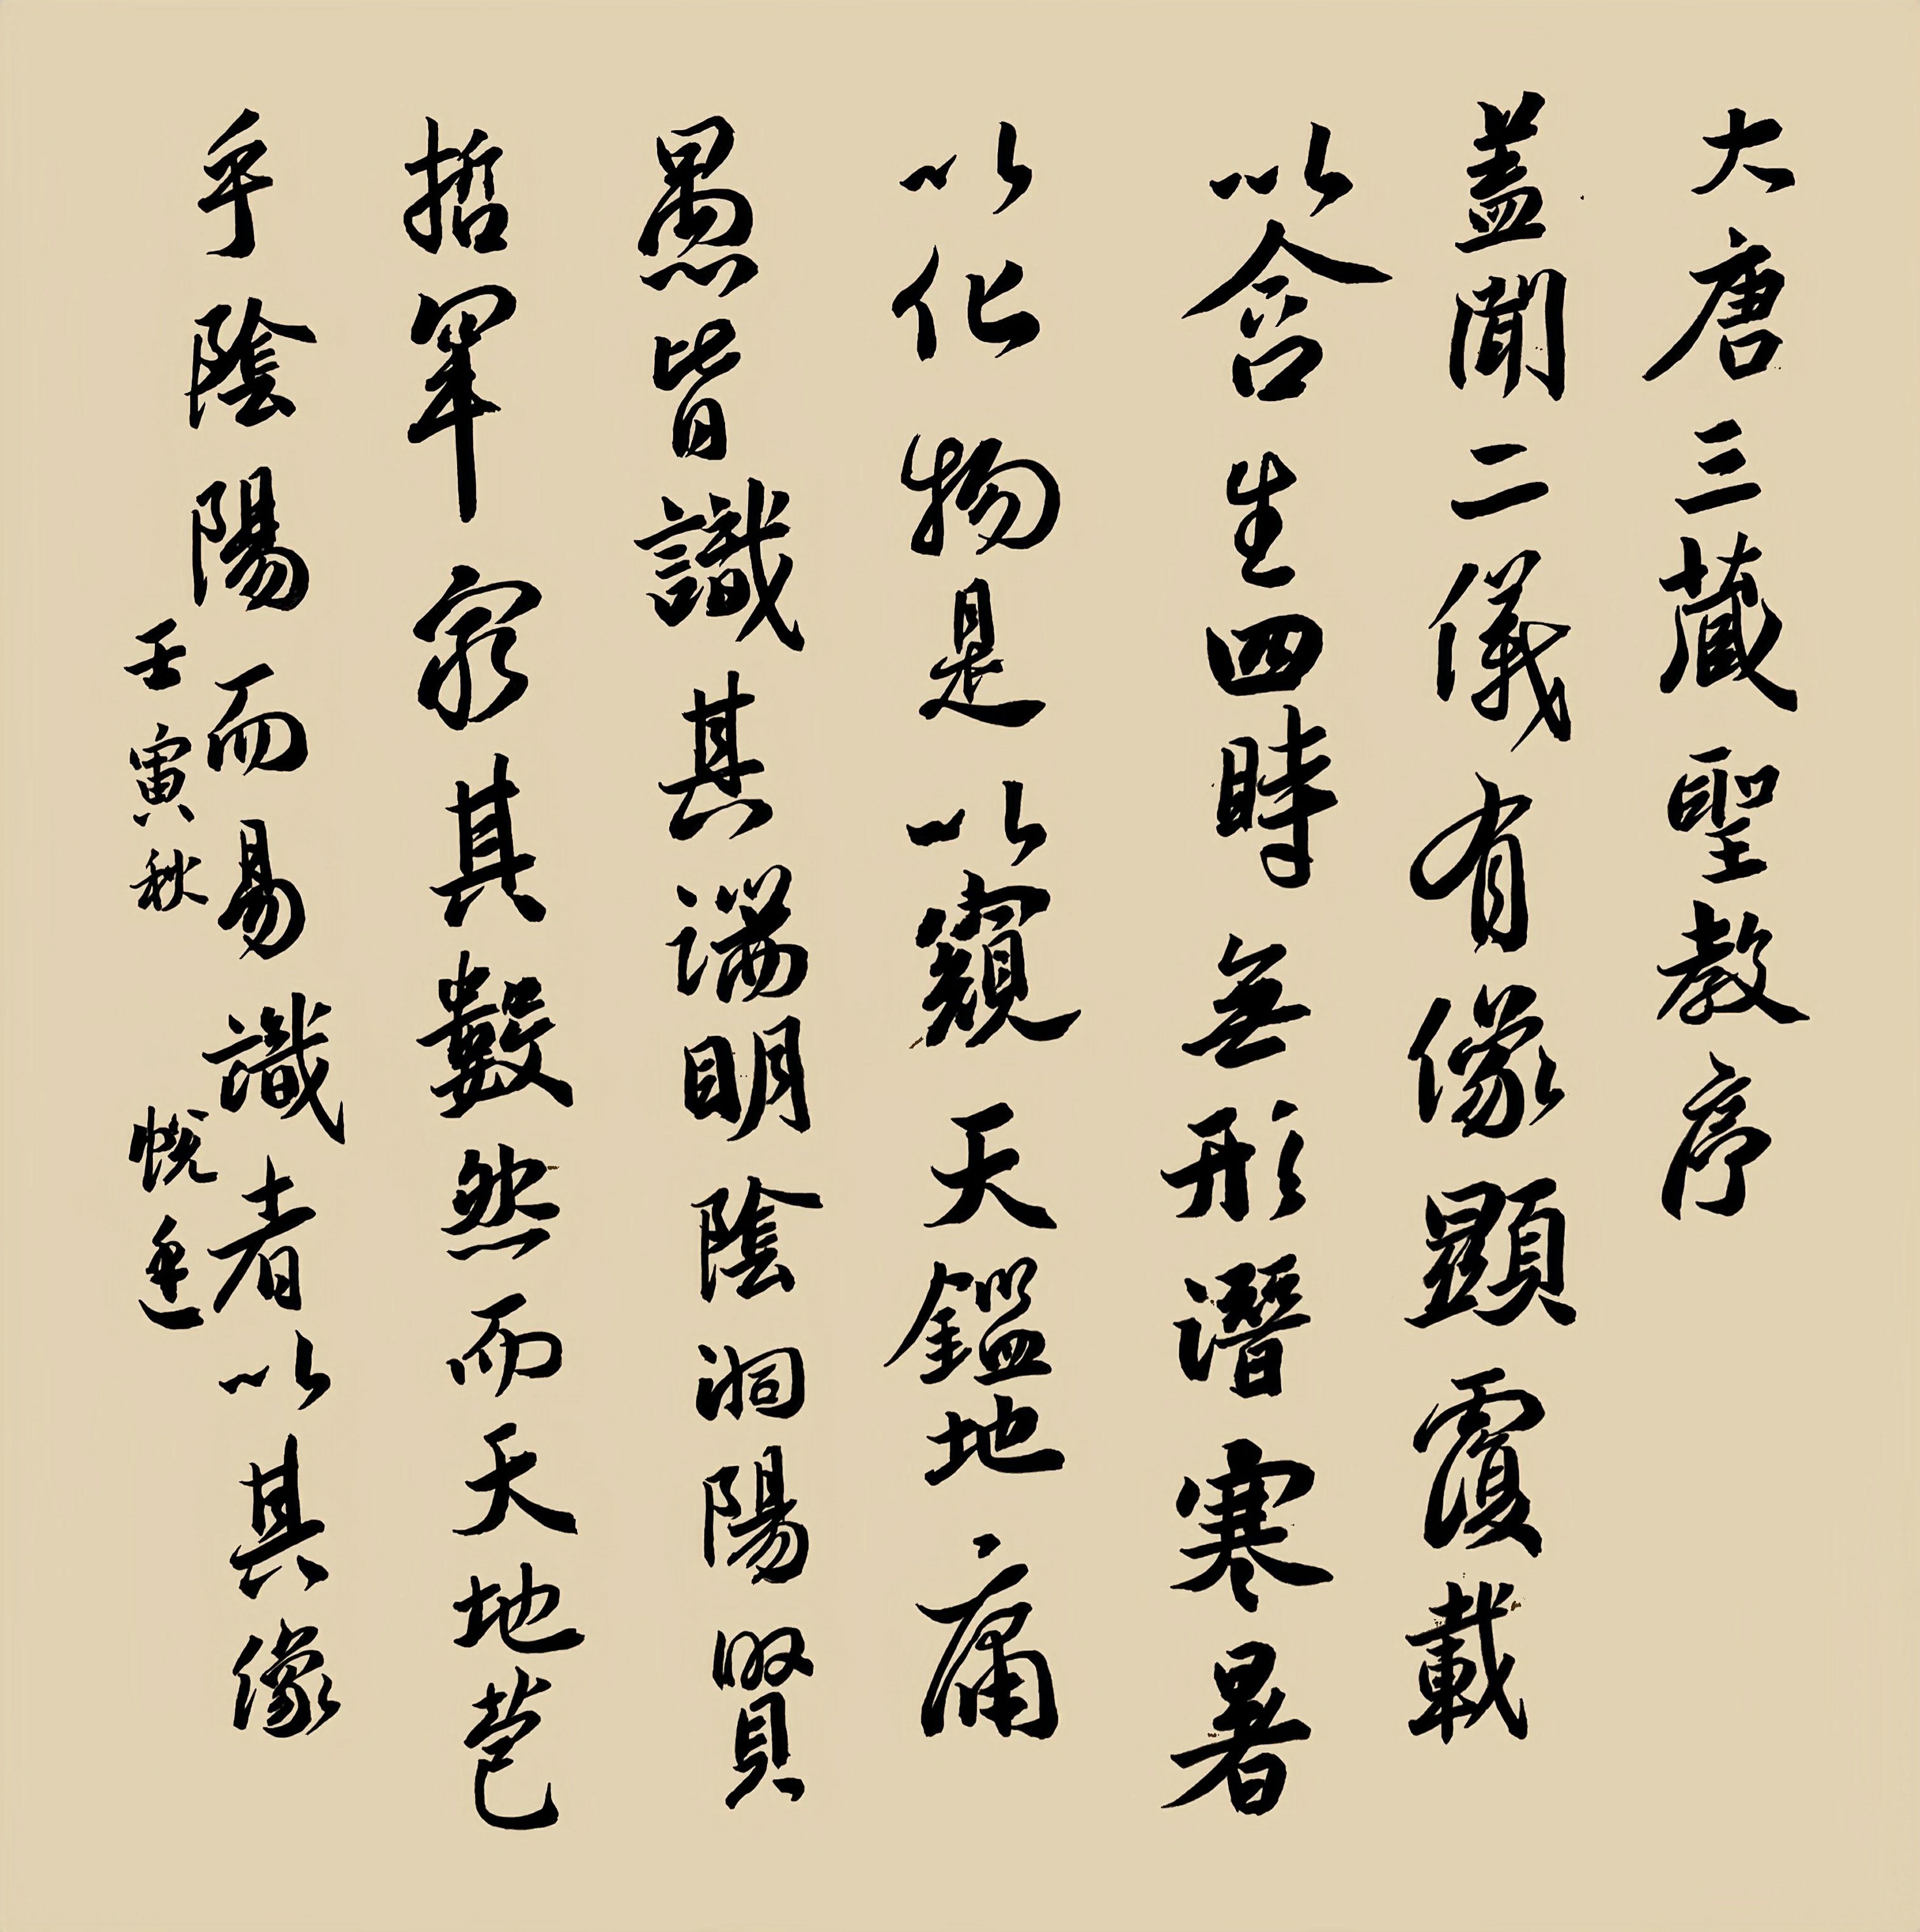 大唐三藏聖教序
蓋聞二儀有像顯覆載
以含生四時無形潛寒暑
以化物是以窺天鑑地庸
愚皆識其端明陰洞陽賢
哲罕窮其數然而天地苞
乎陰陽而易識者以其像
壬寅秋